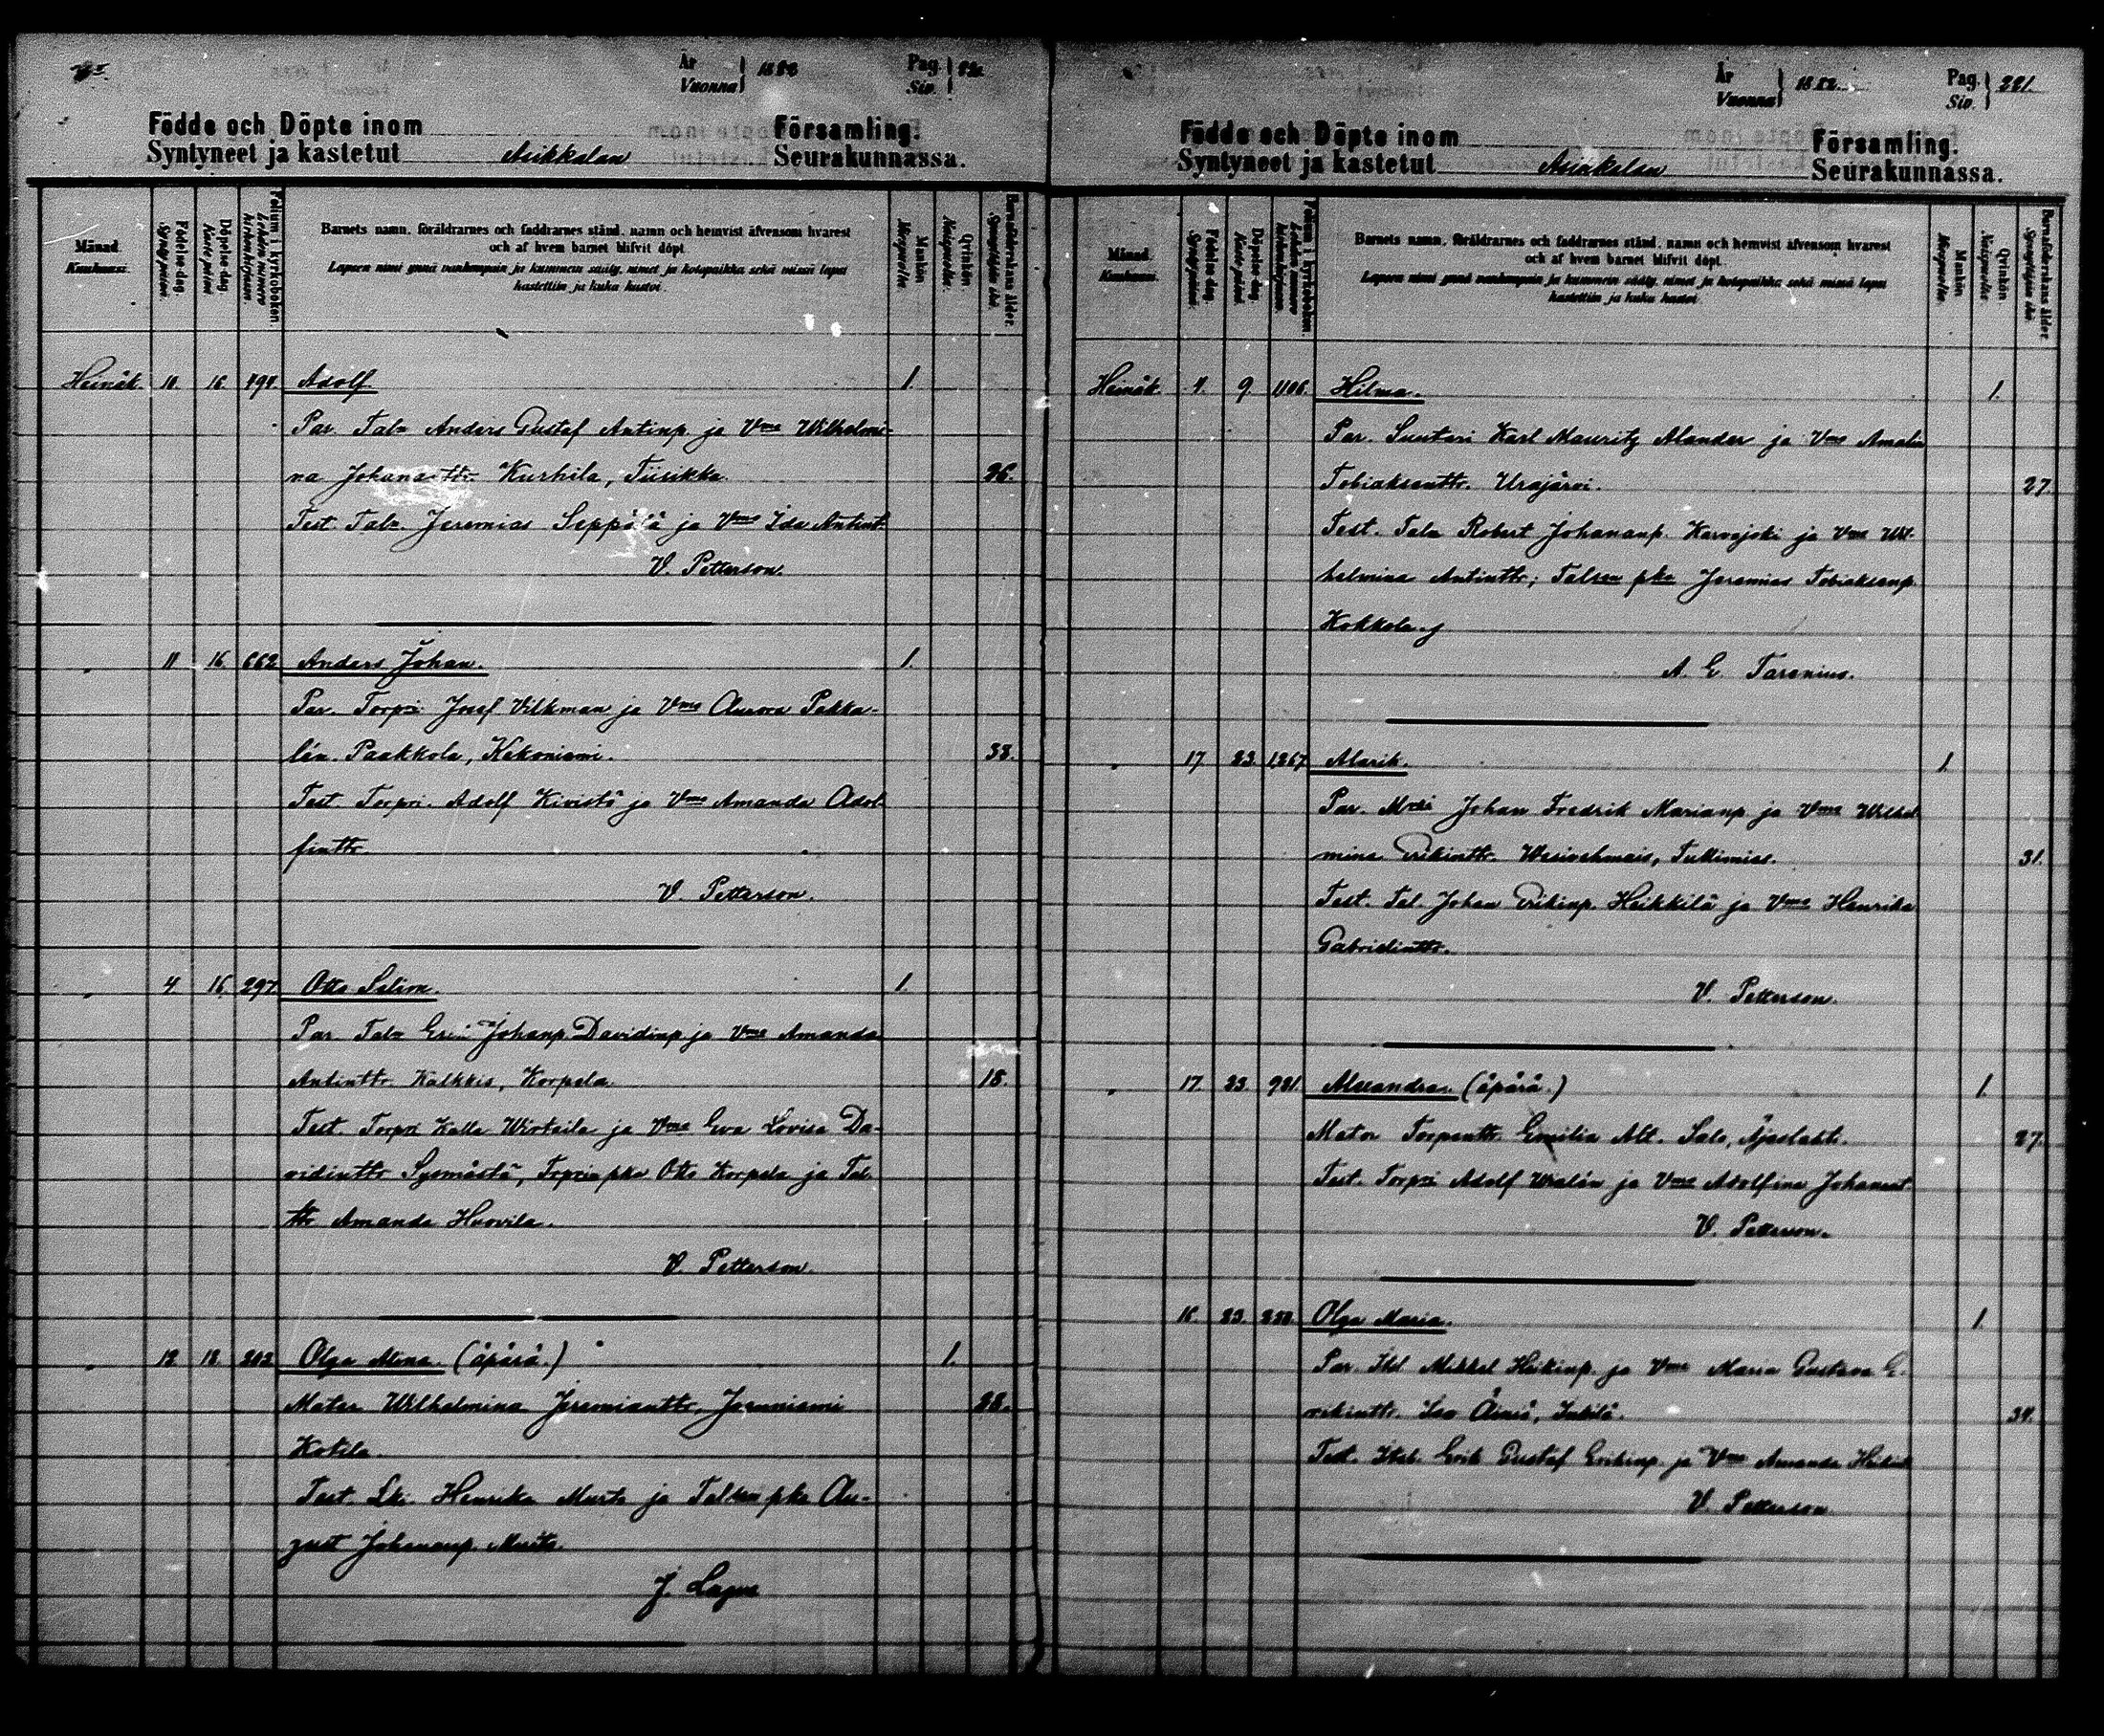 År
Vuonna
1882
Pag.
Siv.
Födde och Döpte inom Församling.
Syntyneet ja kastetut Asikkalan Seurakunnassa.
Månad.
Kuukausi.
Födelse-dag.
Syntypäivä.
Döpelse-dag.
Kaste-päivä
Folium i kyrkoboken.
Lehden numero kirkonkirjassa.
Barnets namn, föräldrarnes och faddrarnes stånd, namn och hemvist äfvensom hvarest
och af hvem barnet blifvit döpt.
Lapsen nimi ynnä vanhempain ja kummein sääty, nimet ja kotopaikka sekä missä lapsi
kastettiin ja kuka kastoi.
Mankön
Miespuolta.
Qvinkön
Naispuolta.
Barnaföderskans ålder.
Synnyttäjän ikä.
Heinäk. 10. 16. 494. Adolf 1.
Par. Tal. Anders Gustaf Antinp. ja Vmo Wilhelmi-
na Johanintr. Kurhila, Tiisikka. 26.
Test. Tal. Jeremias Seppälä ja Vmo Ida Antint.
V. Petterson.
" 11 16. 662 Anders Johan. 1.
Par. Torpri Josef Vilkman ja Vmo Aurora Pakka-
lén. Paakkola, Kekoniemi. 38.
Test. Torpri. Adolf Kivistö ja Vmo Amanda Adol-
fintr.
V. Petterson.
" 4. 16. 297. Otto Selim. 1.
Par. Tal. Johanp. Davidinp. ja Vmo Amanda
Antinttr. Kalkkis, Korpela. 18.
Test. Torpri Kalle Wirtaila ja Vmo Eva Lovisa Da-
vidinttr Sysmästä, Torprin pka Otto Korpela ja Tal.
ttr Amanda Huovila.
V. Petterson.
" 12 18. 202 Olga Alma. (äpärä.) 1.
Mater Wilhelmina Jeremianttr. 28.
Kotila.
Test. Lki. Henrika Musto ja Talsen pka Au-
gust Johananp. Musto.
J. Lagus
År
Vuonna
1882.
Pag.
Siv.
221.
Födde och Döpte inom Församling.
Syntyneet ja kastetut Asikkalan Seurakunnassa.
Månad.
Kuukausi.
Födelse-dag.
Syntypäivä.
Döpelse-dag.
Kaste-päivä.
Folium i kyrkoboken.
Lehden numero kirkonkirjassa.
Barnets namn, föräldrarnes och faddrarnes stånd, namn och hemvist äfvensom hvarest
och af hvem barnet blifvit döpt.
Lapsen nimi ynnä vanhempain ja kummein sääty, nimet ja kotopaikka sekä missä lapsi
kastettiin ja kuka kastoi.
Mankön
Miespuolta.
Qvinkön
Naispuolta.
Barnaföderskans ålder
Synnyttäjän ikä.
Heinäk. 4. 9. 1106. Hilma. 1.
Par. Suutari Karl Mauritz Alander ja Vmo Amalia
Tobiaksenttr. Urajärvi. 27.
Test. Tal. Robert Johananp. Karvajoki ja Vmo Wil-
helmina Antinttr; Talsen pka Jeremias Tobiaksenp.
Kokkola.
A. E. Tarenius.
" 17. 23. 1267 Alarik. 1.
Par. Mki Johan Fredrik Marianp. ja Vmo Wilhel-
mina Erikinttr. Wesivehmais, 31.
Test. Tal. Johan Erikinp. Heikkilä ja Vmo Henrika
Gabrielinttr.
V. Petterson.
" 17. 23. 981. Alexandra. (äpärä.) 1.
Mater Torparittr. Emilia Alt. Salo, 27.
Test. Torpri Adolf ja Vmo Adolfina Johanint.
V. Petterson.
16. 23. 250. Olga Maria. 1.
Par. Itsl Mikkel Heikinp. ja Vmo Maria Gustava E-
rikinttr. 34.
Test. Itsl. Erik Gustaf Erikinp. ja Vmo Amanda
V. Petterson